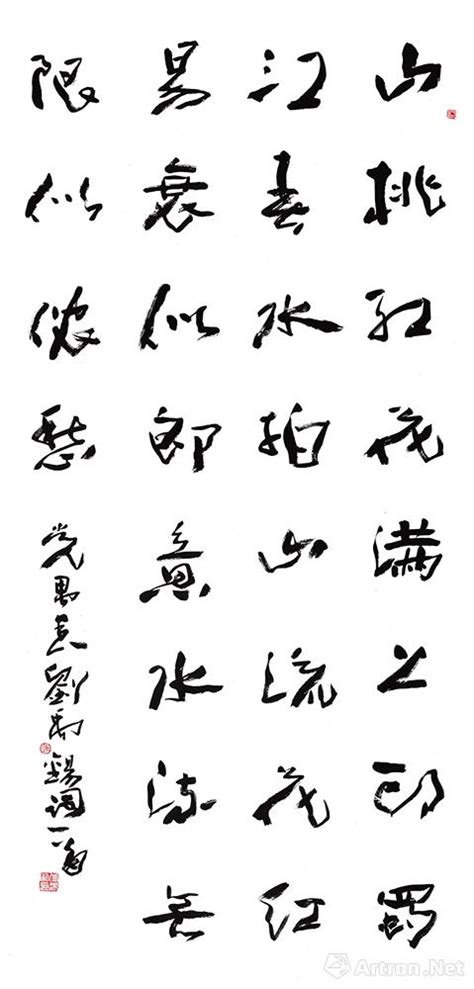 山桃红花满上头蜀
江春水拍山流花红
易衰似郎意水流无
限似侬愁
劉禹錫词一首
Artron.Net